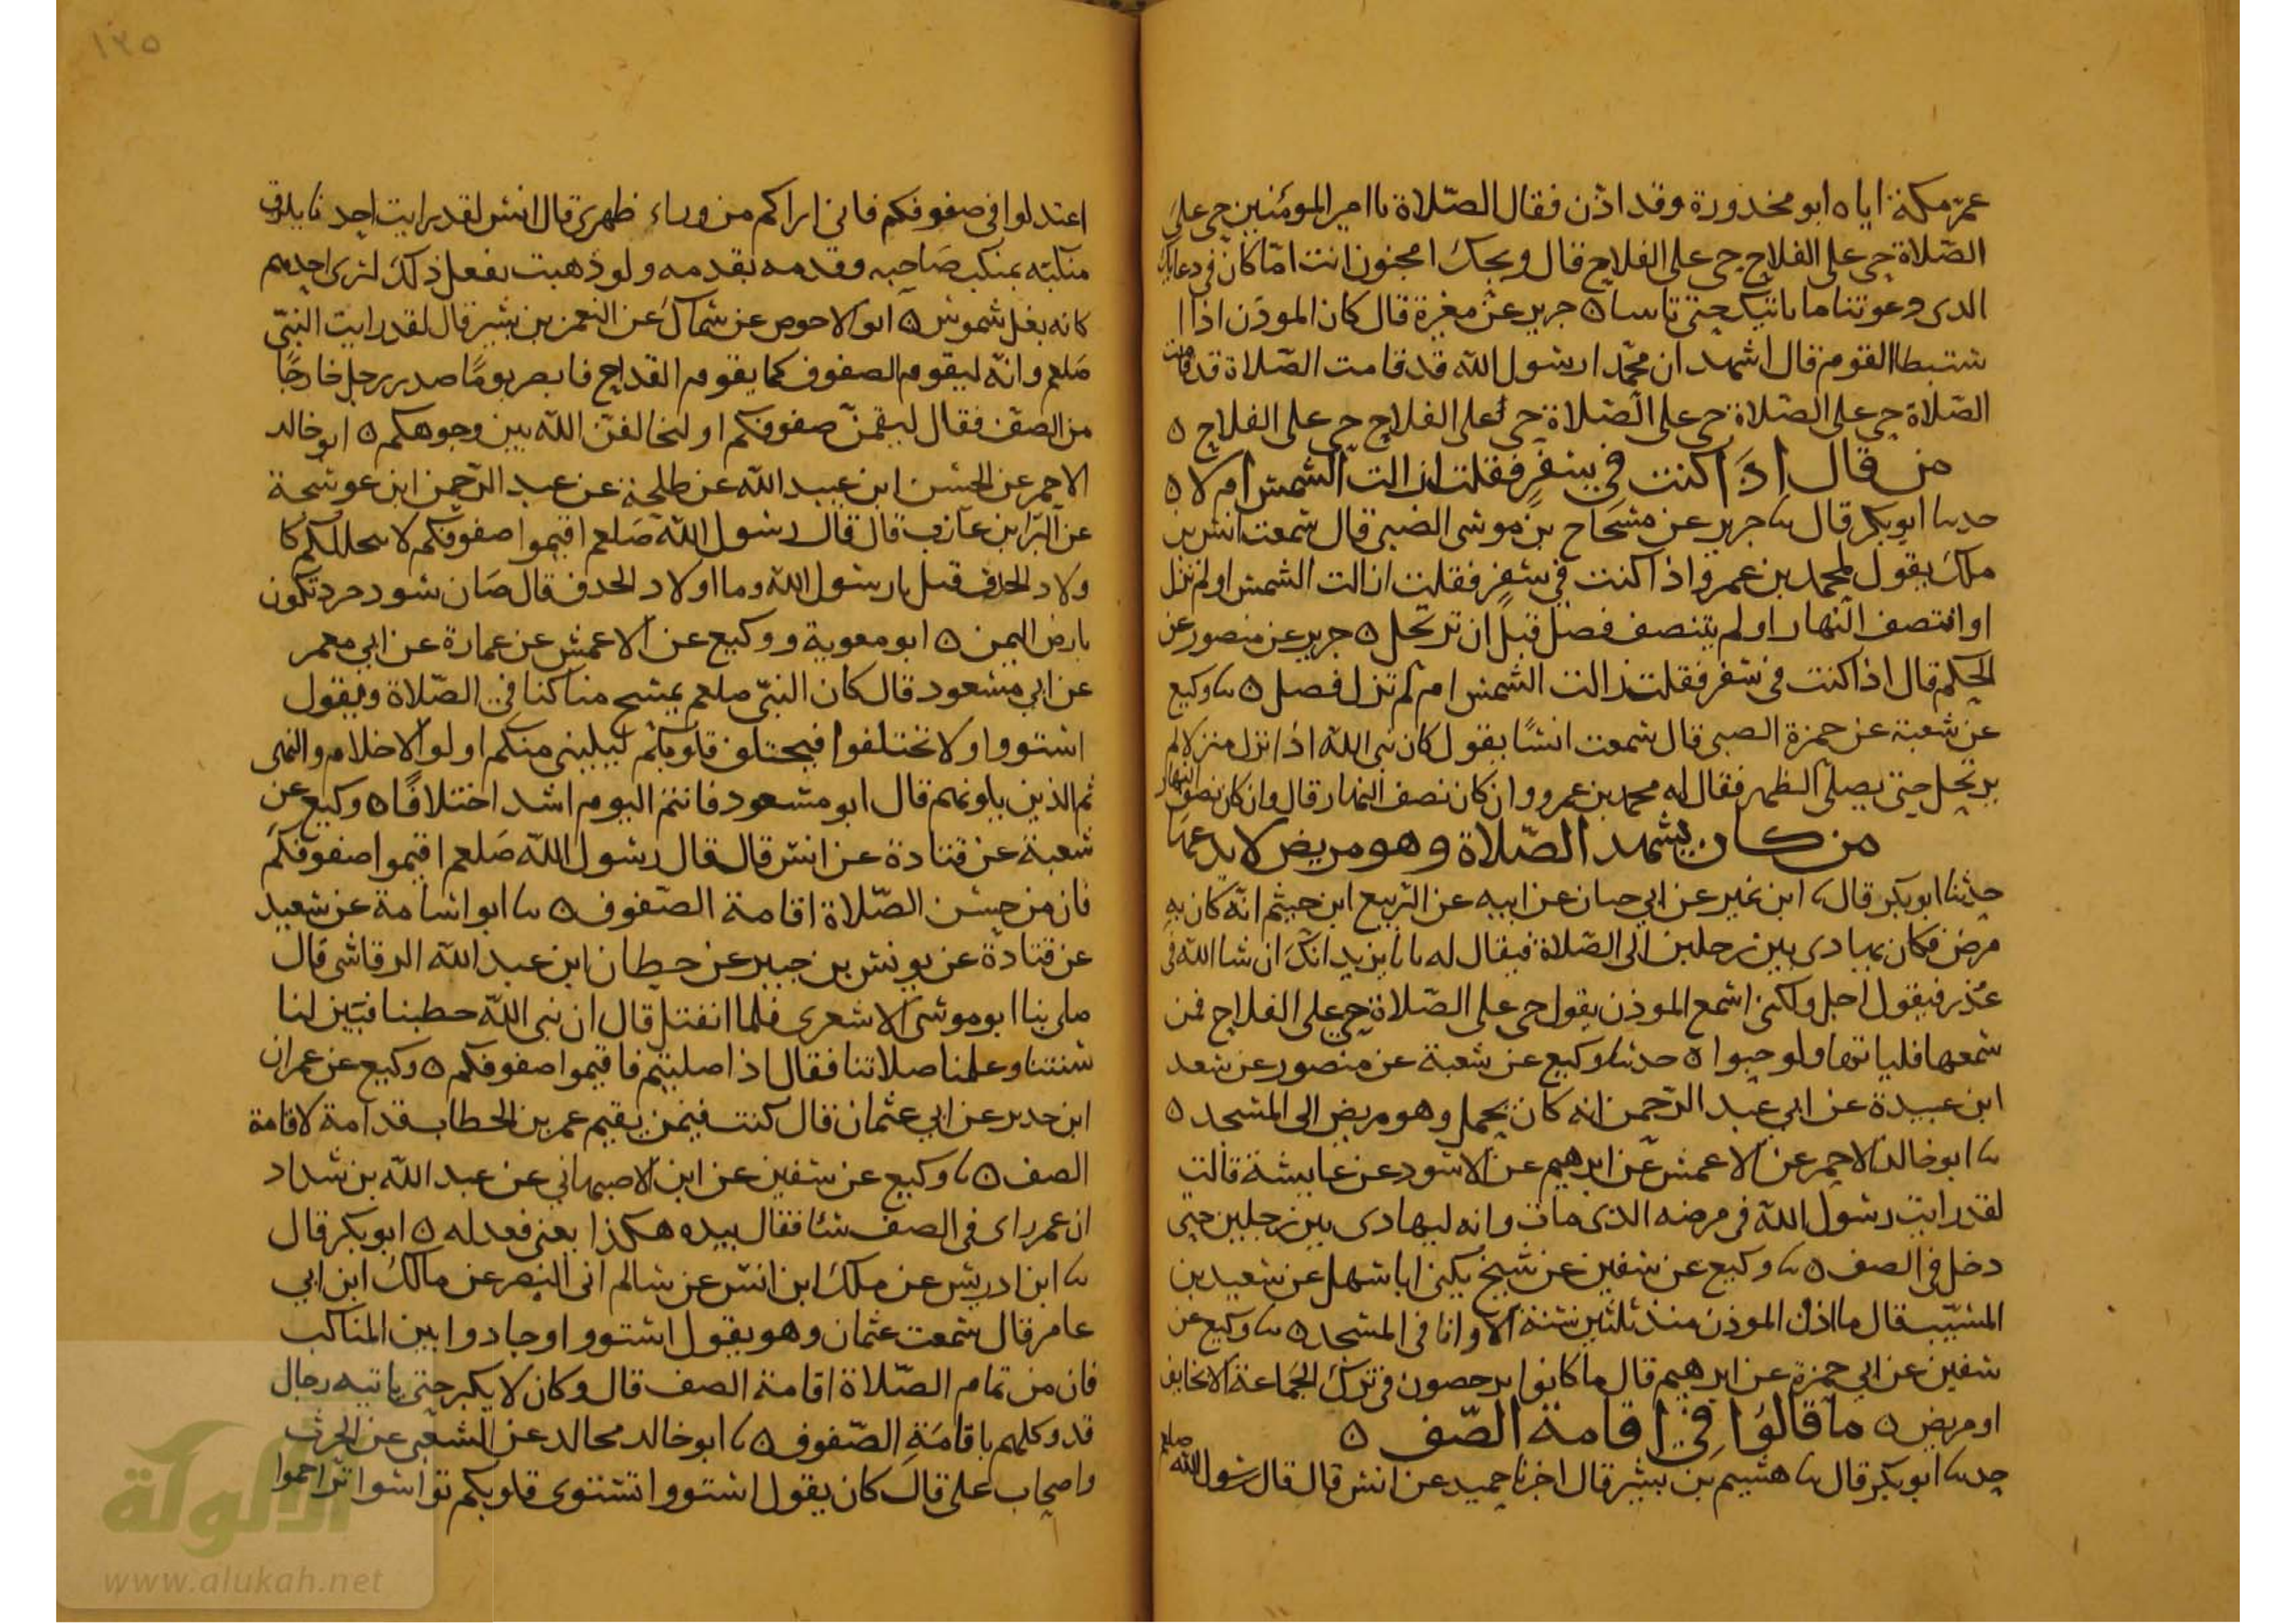 عمر مكة اياه ابو محذورة وقد اذن فقال الصّلاة يا امير المؤمنين حي على
الصّلاة حي على الفلاح حي على الفلاح قال ويحك امجنون انت امّا كان في دعايك
الذى دعوتنا ما ناتيك حتى تاتينا ٥ جرير عن مغيرة قال كان الموذن اذا ا
ستبطا القوم قال اشهد ان محمّدا رسول الله قد قامت الصّلاة قد قامت
الصّلاة حي على الصّلاة حي على الصّلاة حي على الفلاح حي على الفلاح ٥
من قال اذا كنت في سفر فقلت ازالت الشمس ام لا ٥
حدثنا ابو بكر قال ثنا جرير عن مسحاج بن موسى الضبي قال سمعت انس بن
ملك يقول لمحمد بن عمرو اذا كنت في سفر فقلت ازالت الشمس او لم تزل
او انتصف النهار او لم يتنصف فصل قبل ان ترتحل ٥ جرير عن منصور عن
الحكم قال اذا كنت في سفر فقلت زالت الشمس ام لم تزل فصل ٥ ثنا وكيع
عن شعبة عن حمزة الضبي قال سمعت انسًا يقول كان نبي الله اذا نزل منزلا لم
يرتحل حتى يصلي الظهر فقال له محمد بن عمرو وان كان نصف النهار قال وان كان نصف النهار
من كان يشهد الصّلاة وهو مريض لا يدعها
حدثنا ابو بكر قال ثنا ابن نمير عن ابي حيان عن ابيه عن الربيع ابن خيثم انّه كان به
مرض فكان يهادى بين رجلين الى الصّلاة فيقال له يا ابا يزيد انك ان شا الله في
عذر فيقول اجل ولكنى اسمع الموذن يقول حي على الصّلاة حي على الفلاح فمن
سمعها فلياتها ولو حبوا ٥ حدثنا وكيع عن شعبة عن منصور عن سعد
ابن عبيدة عن ابي عبد الرّحمن انه كان يحمل وهو مريض الى المسجد ٥
ثنا ابو خالد الاحمر عن الاعمش عن ابرهيم عن الاسود عن عايشة قالت
لقد رايت رسول الله في مرضه الذى مات وانه ليهادى بين رجلين حتى
دخل في الصف ٥ ثنا وكيع عن سفين عن شيخ يكنى ابا سهل عن سعيد بن
المسيّب قال ما اذن الموذن منذ ثلثين سنة الا وانا في المسجد ٥ ثنا وكيع عن
سفين عن ابي حمزة عن ابرهيم قال ما كانوا يرخصون في ترك الجماعة الا لخايف
او مريض ٥ ما قالوا في اقامة الصّف ٥
حدثنا ابو بكر قال ثنا هشيم بن بشير قال اخبرنا حميد عن انس قال قال رسول الله صلعم
اعتدلوا في صفوفكم فاني اراكم من وراء ظهرى قال انس لقد رايت احدنا يلزق
منكبه بمنكب صاحبه وقدمه بقدمه ولو ذهبت تفعل ذلك لترى احدهم
كانه بغل شموس ٥ ابو الاحوص عن سماك عن النعمن بن بشير قال لقد رايت النبيّ
صلعم وانّه ليقوم الصفوف كما يقوم القداح فابصر يومًا صدر رجل خارجًا
من الصف فقال ليقمنّ صفوفكم او ليخالفنّ الله بين وجوهكم ٥ ابو خالد
الاحمر عن الحسن ابن عبيد الله عن طلحة عن عبد الرّحمن ابن عوسجة
عن البرا بن عازب قال قال رسول الله صلعم اقيموا صفوفكم لا يتخللكم كا
ولاد الحذف قيل يا رسول الله وما اولاد الحذف قال ضان سود جرد تكون
بارض اليمن ٥ ابو معوية ووكيع عن الاعمش عن عمارة عن ابي معمر
عن ابي مسعود قال كان النبيّ صلعم يمسح مناكبنا في الصّلاة ويقول
استووا ولا تختلفوا فيختلف قلوبكم ليليني منكم اولوا الاحلام والنهى
ثم الذين يلونهم قال ابو مسعود فانتم اليوم اشد اختلافًا ٥ وكيع عن
شعبة عن قتادة عن انس قال قال رسول الله صلعم اقيموا صفوفكم
فان من حسن الصّلاة اقامة الصفوف ٥ ثنا ابو اسامة عن سعيد
عن قتادة عن يونس بن جبير عن حطان ابن عبد الله الرقاشى قال
صلى بنا ابو موسى الاشعرى فلما انفتل قال ان نبي الله خطبنا فبيّن لنا
سنتنا وعلمنا صلاتنا فقال اذا صليتم فاقيموا صفوفكم ٥ وكيع عن عمران
ابن حدير عن ابي عثمان قال كنت فيمن يقيم عمر بن الخطاب قدامه لاقامة
الصف ٥ ثنا وكيع عن سفين عن ابن الاصبهاني عن عبد الله بن شداد
ان عمر راى في الصف شئا فقال بيده هكذا يعنى فعدله ٥ ابو بكر قال
ثنا ابن ادريس عن ملك ابن انس عن سالم ابى النضر عن مالك ابن ابي
عامر قال سمعت عثمان وهو يقول استووا وحاذوا بين المناكب
فان من تمام الصّلاة اقامة الصف قال وكان لا يكبر حتى ياتيه رجال
قد وكلهم باقامة الصّفوف ٥ ثنا ابو خالد مجالد عن الشعبى عن الحرث
واصحاب على قال كان يقول استووا تستوى قلوبكم تراصوا تراحموا
١٢٥
الألوكة
www.alukah.net